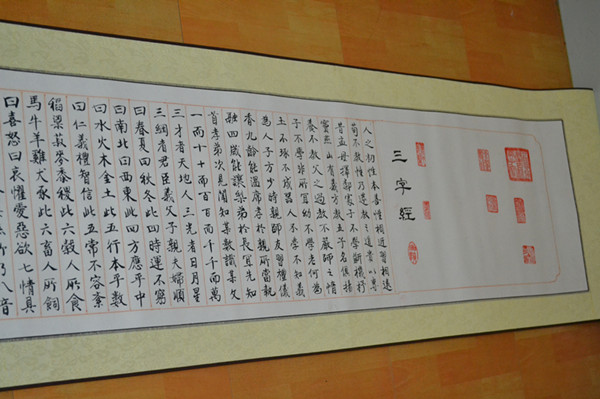 三字經
人之初性本善性相近習相遠
苟不教性乃遷教之道貴以專
昔孟母擇鄰處子不學斷機杼
竇燕山有義方教五子名俱揚
養不教父之過教不嚴師之惰
子不學非所宜幼不學老何為
玉不琢不成器人不學不知義
為人子方少時親師友習禮儀
香九齡能溫席孝於親所當執
融四歲能讓梨弟於長宜先知
首孝弟次見聞知某數識某文
一而十十而百百而千千而萬
三才者天地人三光者日月星
三綱者君臣義父子親夫婦順
曰春夏曰秋冬此四時運不窮
曰南北曰西東此四方應乎中
曰水火木金土此五行本乎數
曰仁義禮智信此五常不容紊
稻粱菽麥黍稷此六穀人所食
馬牛羊雞犬豕此六畜人所飼
曰喜怒曰哀懼愛惡欲七情具
乃八音